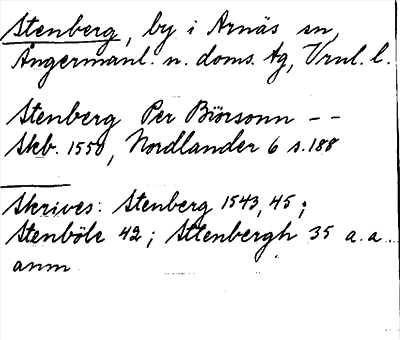 Stenberg, by i Arnäs sn,
Ångermanl. n. doms. tg, Vrnl. l.
Stenberg Per Biörsonn – –
Skb. 1550, Nordlander 6 s. 188
Skrives: Stenberg 1543, 45;
Stenböle 42; Sttenbergh 35 a. a.
anm